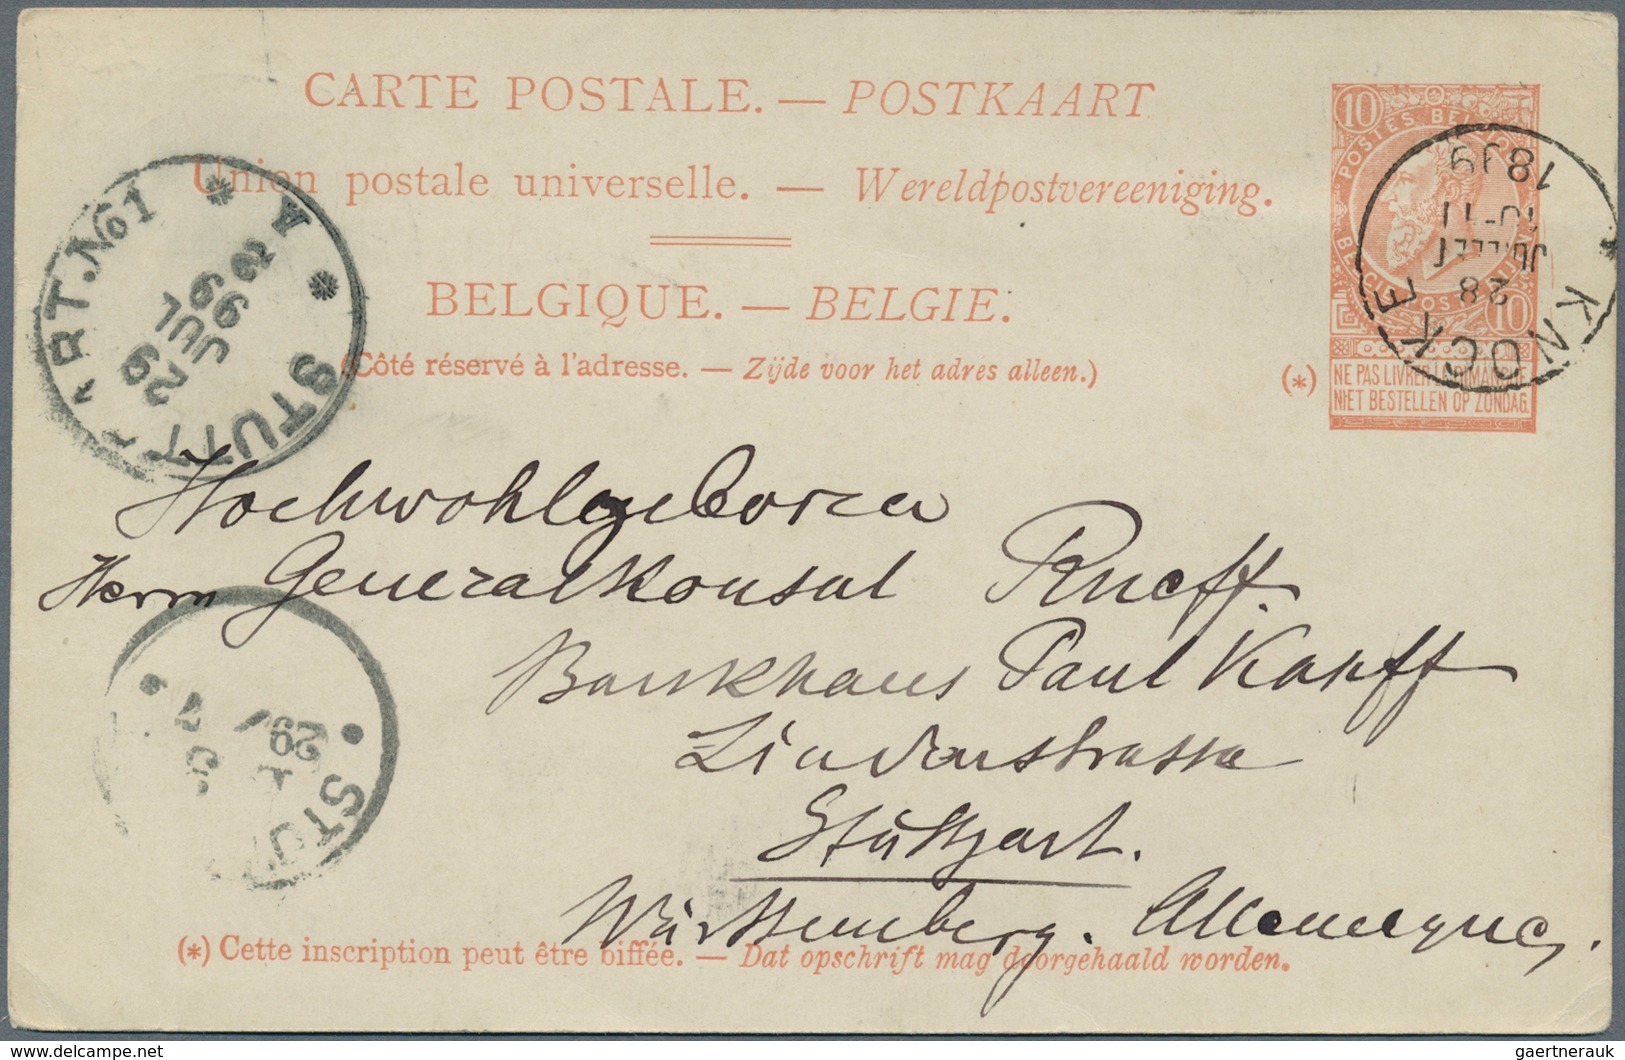 CARTE POSTALE. — POSTKAART
Union postale universelle. — Wereldpostvereeniging.
BELGIQUE. — BELGIE.
(Côté réservé à l'adresse. — Zijde voor het adres alleen.)
10
POSTES BELGIQUE
10
(*)
NE PAS LIVRER LE DIMANCHE
NIET BESTELLEN OP ZONDAG.
KNOCKE
28
JUILLET
10-11
1899
STUTTGART.No1
29
JUL
99
STU
29
Hochwohlgeboren
Herrn Generalkonsul Rueff.
Bankhaus Paul Kapff
Lindenstrasse
Stuttgart.
Württemberg. Allemagne.
(*) Cette inscription peut être biffée. — Dat opschrift mag doorgehaald worden.
delcampe.net
gaertnerauk